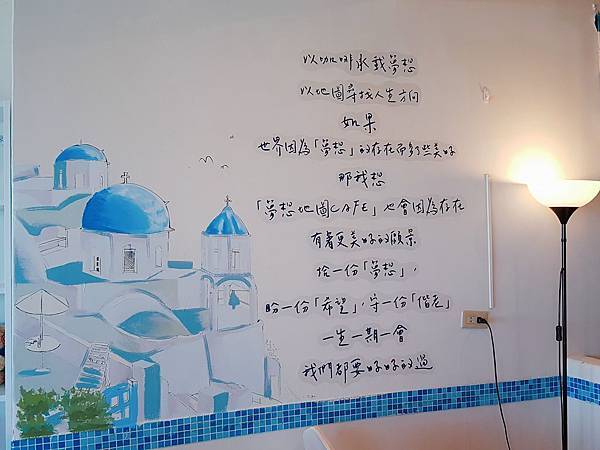 以咖啡承載夢想
以地圖尋找人生方向
如果
世界因為「夢想」的存在而多了些美好
那我想
「夢想地圖CAFE」也會因為存在
有著更美好的願景
拾一份「夢想」,
盼一份「希望」,守一份「偕老」
一生一期一會
我們都要好好的過